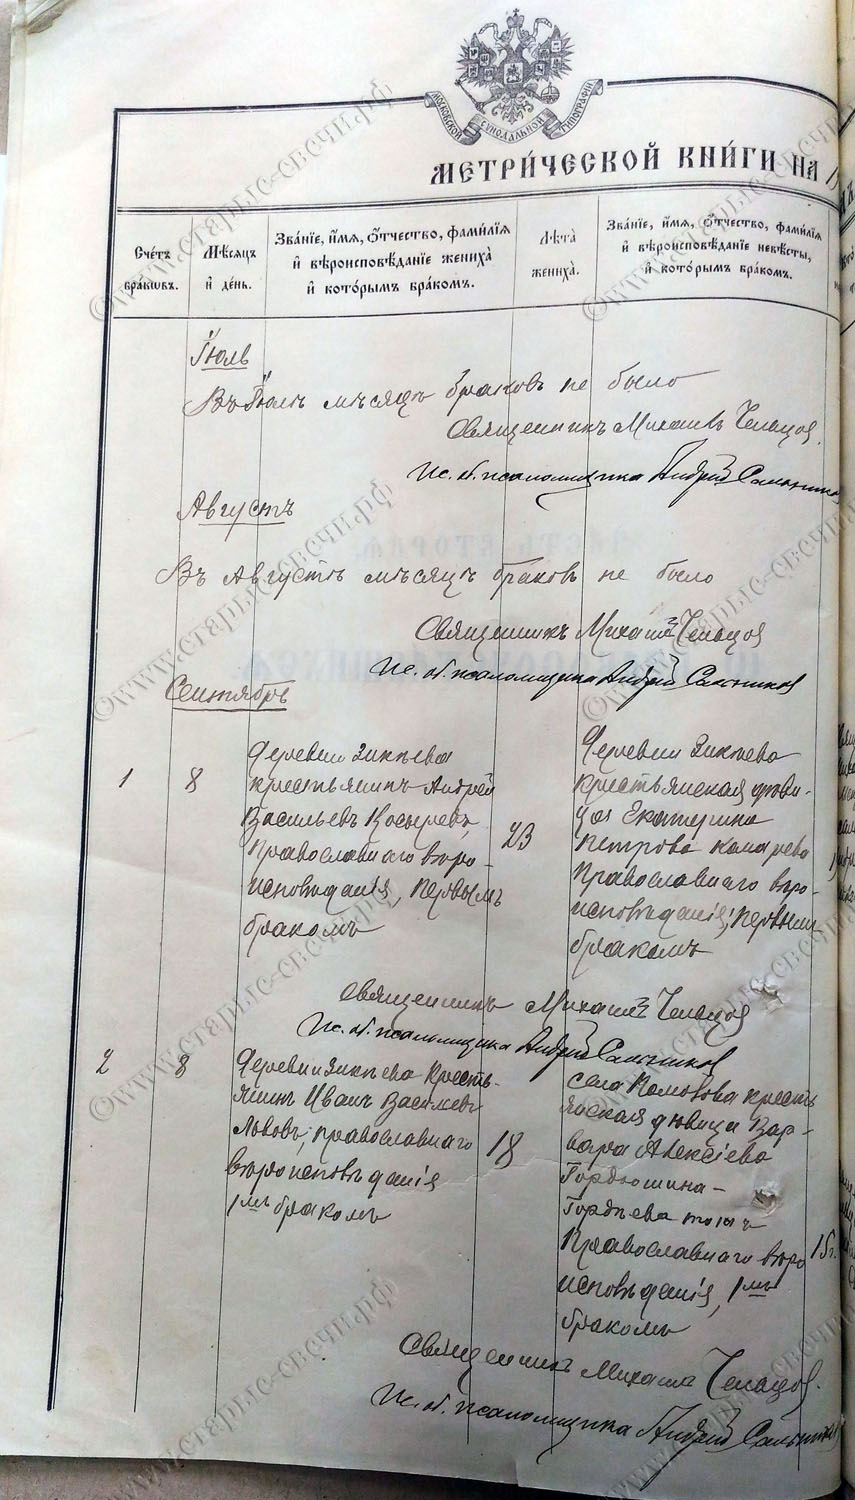 МОСКОВСКОЙ СУНОДАЛЬНОЙ ТИПОГРАФІИ
МЕТРИ́ЧЕСКОЙ КНИ́ГИ НА 19
Сче́тъ бра́кѡвъ.
Мѣ́сяцъ и҆ де́нь.
Зва́нїе, и҆́мя, ѻ҆́тчество, фами́лїя и҆ вѣроисповѣ́данїе жениха̀ и҆ кото́рымъ бра́комъ.
Лѣта̀ жениха̀.
Зва́нїе, и҆́мя, ѻ҆́тчество, фами́лїя и҆ вѣроисповѣ́данїе невѣ́сты, и҆ кото́рымъ бра́комъ.
Іюль
Въ Іюлѣ мѣсяцѣ браковъ не было
Священникъ Михаилъ Чельцов.
Ис. об. псаломщика Андрей Сальников
Августъ
Въ Августѣ мѣсяцѣ браковъ не было
Священникъ Михаилъ Чельцов
Ис. об. псаломщика Андрей Сальников
Сентябрь
1
8
Деревни Зикѣева
крестьянинъ Андрей
Васильевъ Косыревъ,
Православнаго вѣро-
исповѣданія, первымъ
бракомъ
23
Деревни Зикѣево
Крестьянская дѣви-
ца Екатерина
Петрова
Православнаго вѣро-
исповѣданія, первымъ
бракомъ
Священникъ Михаилъ Чельцов
Ис. об. псаломщика Андрей Сальников
2
8
Деревни Зикѣева Кресть-
янинъ Иванъ Васильевъ
Львовъ, православнаго
вѣроисповѣданія
1мъ бракомъ
18
села кресть
янская дѣвица Вар-
вара Алексіева
Гордюшина-
Гордѣева тожъ
Православнаго вѣро
исповѣданія, 1мъ
бракомъ
15 г.
Священникъ Михаилъ Чельцов.
Ис. об. псаломщика Андрей Сальников
©www.старые-свечи.рф